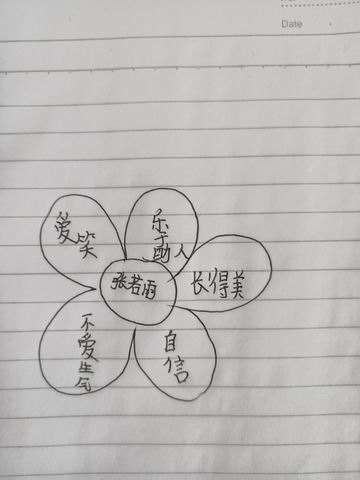 Date
爱笑
乐于助人
张若雨
长得美
不爱生气
自信